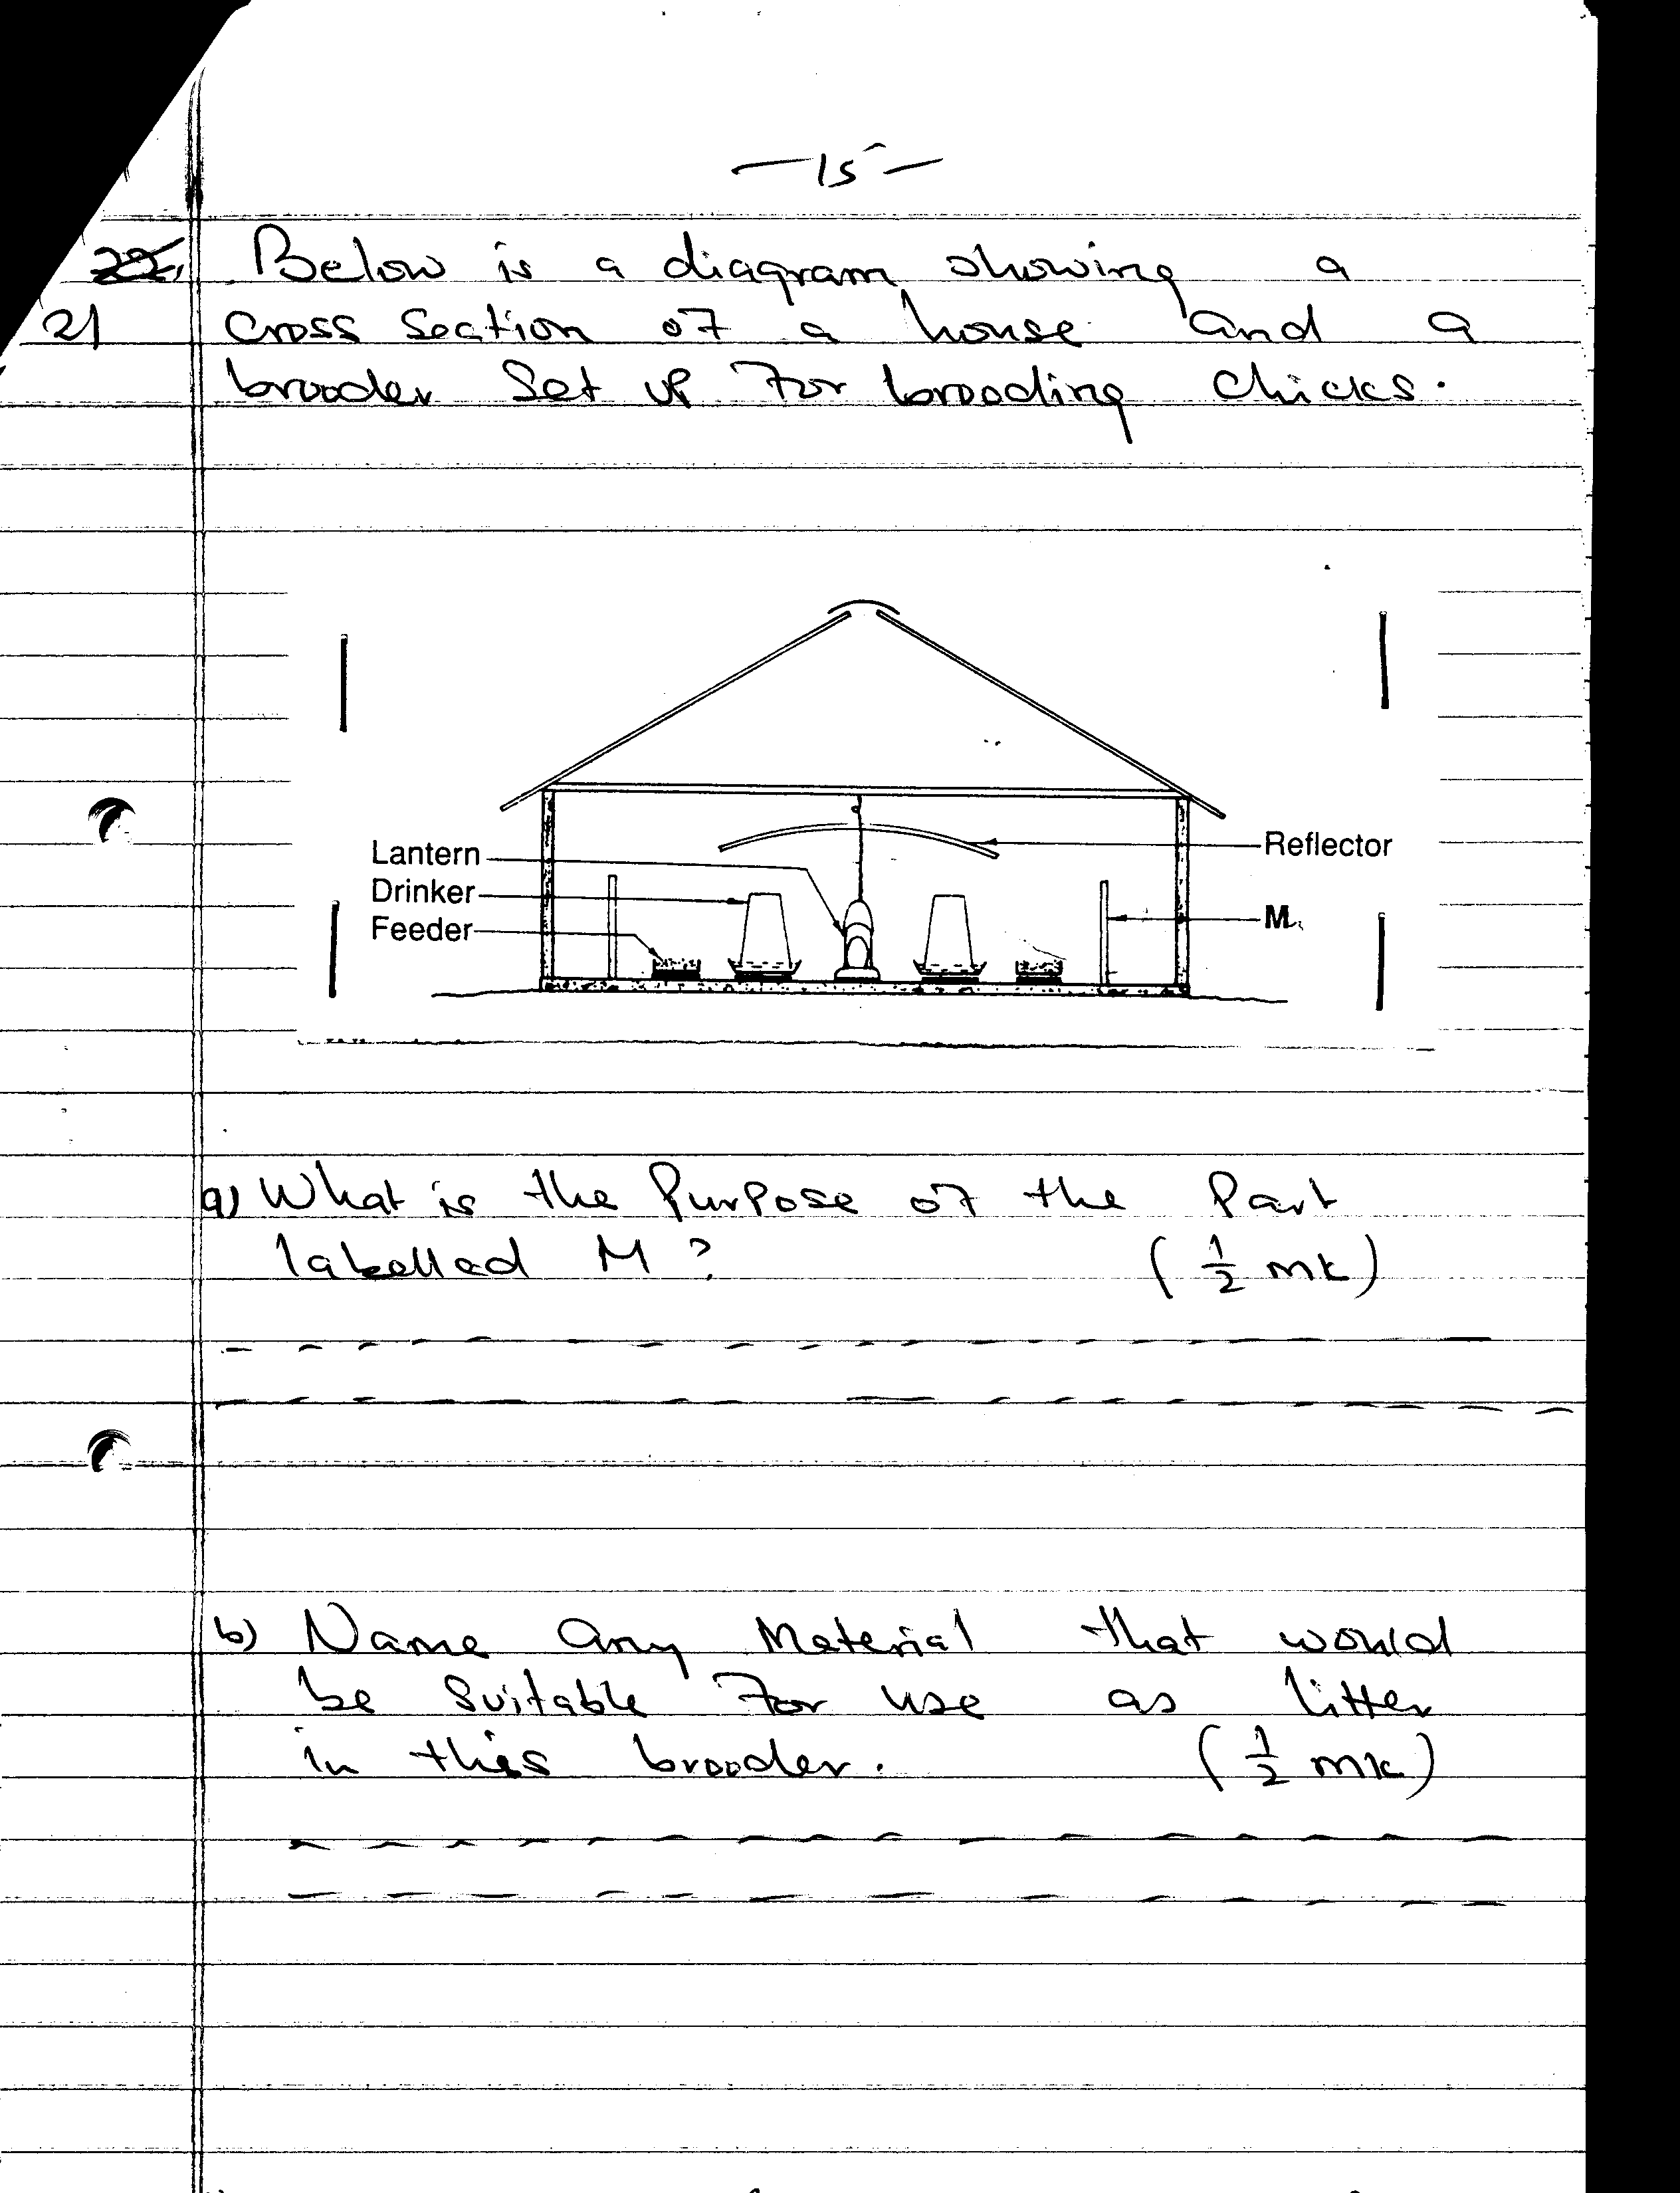 -15-
22. Below is a diagram showing a
21 cross section of a house and a
brooder set up for brooding chicks.
Lantern
Reflector
Drinker
Feeder
M
a) What is the purpose of the part
labelled M? (1/2 mk)
b) Name any material that would
be suitable for use as litter
in this brooder. (1/2 mk)